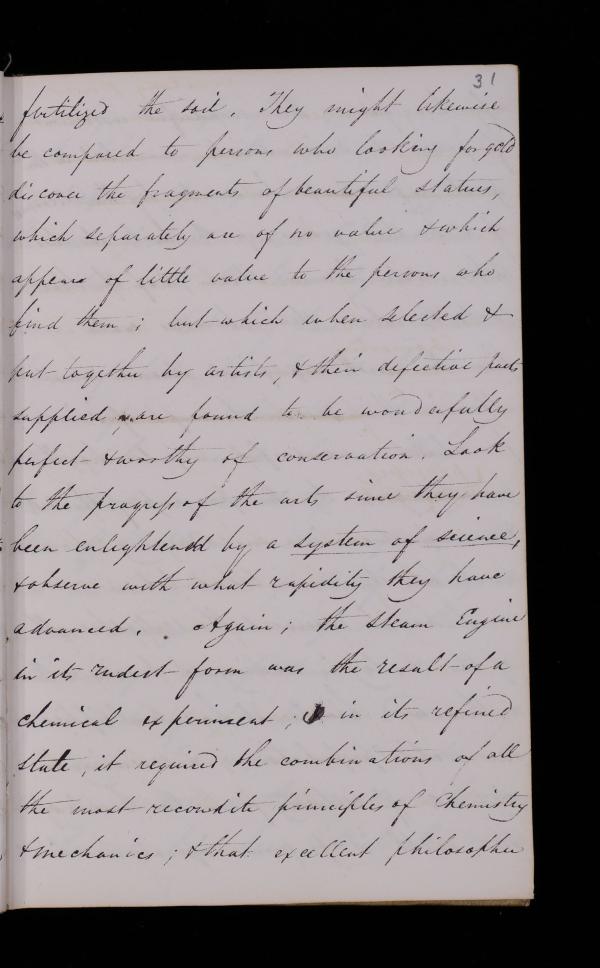 31
fertilized the soil. They might likewise
be compared to persons who looking for gold
discover the fragments of beautiful statues,
which separately are of no value & which
appear of little value to the persons who
find them; but which when selected &
put together by artists, & their defective parts
supplied, are found to be wonderfully
perfect & worthy of conservation. Look
to the progress of the arts since they have
been enlightened by a system of science,
& observe with what rapidity they have
advanced. Again; the steam Engine
in its rudest form was the result of a
chemical experiment; in its refined
state, it required the combinations of all
the most recondite principles of Chemistry
& mechanics; & that excellent philosopher